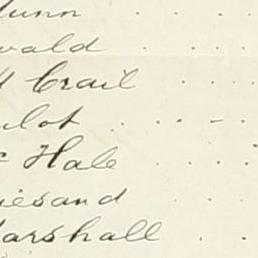 unn
wald
Crail
ulot
c Hale
iesand
arshall